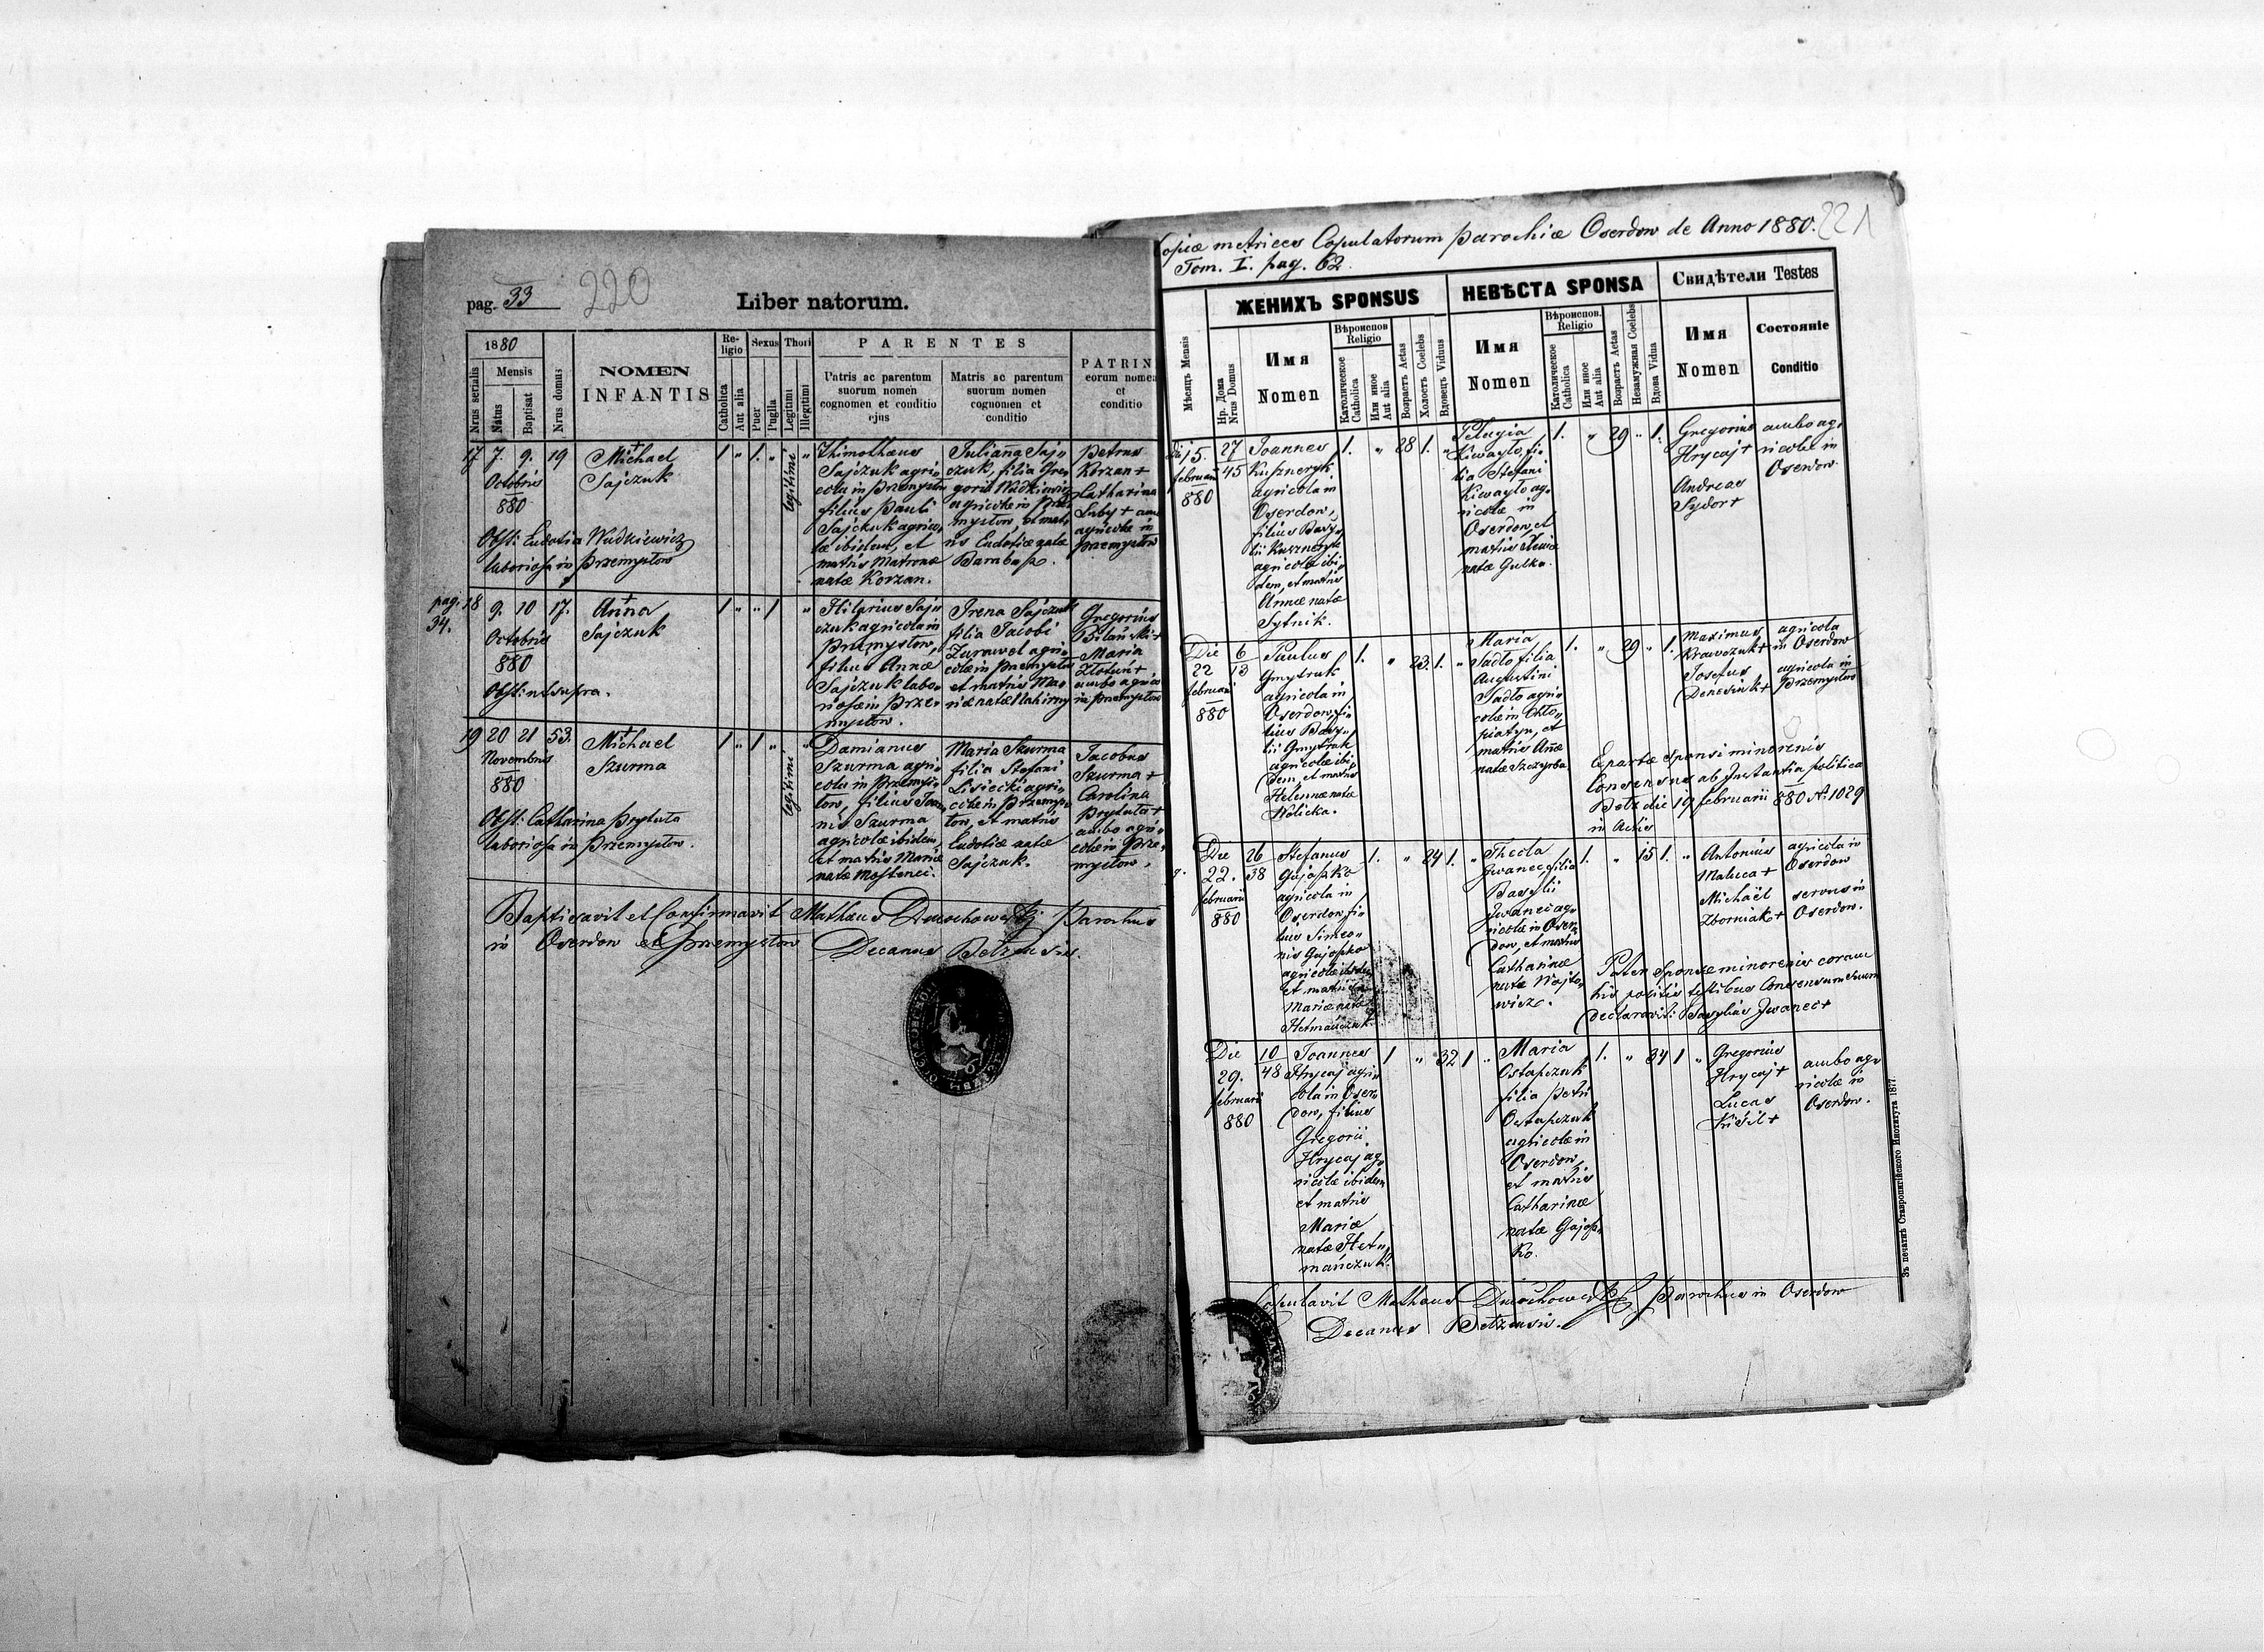 pag. 33 220 Liber natorum.
1880
Nrus serialis
Mensis
Natus
Baptisat
Nrus domus
NOMEN
INFANTIS
Religio
Catholica
Aut alia
Sexus
Puer
Puella
Thori
Legitimi
Illegitimi
PARENTES
Patris ac parentum
suorum nomen
cognomen et conditio
ejus
Matris ac parentum
suorum nomen
cognomen et
conditio
PATRINI
eorum nomen
et
conditio
17 7. 9. 19
Octobris
880
Michael
Sajczuk
1 " 1. "
legitimi
Thimothaeus
Sajczuk agri„
cola in Przemysłow
filius Pauli
Sajczuk agrico„
lae ibidem, et
matris Matronae
natae Korzan.
Julianna Saj„
czuk, filia Gre„
gorii Wudkiewicz
agricolae in Prze„
mysłow, et mat„
ris Eudociae natae
Petrus
Korzan +
Catharina
agricolae in
Przemysłow
Obst: Eudocia Wudkiewicz
laboriosa in Przemysłow.
pag. 34.
18 9. 10 17.
Octobris
880
Anna
Sajczuk
1 " " 1 "
Hilarius Saj„
czuk agricola in
Przemysłow,
filius Annae
Sajczuk labo„
riosae in Prze„
mysłow.
Irena Sajczuk
filia Jacobi
Zurawel agri„
colae in Przemysłow
et matris Ma„
riae natae
Gregorius
Maria
ambo agrico
in Przemysłow
Obst: ut supra.
19 20 21 53.
Novembris
880
Michael
Szurma
1 " 1 "
legitimi
Damianus
Szurma agri„
cola in Przemys„
łow, filius Joan„
nis Szurma
agricolae ibidem,
et matris Mariae
natae
Maria Szurma
filia Stefani
Lisiecki agri„
colae in Przemys„
łow, et matris
Eudociae natae
Sajczuk.
Jacobus
Szurma +
Carolina
Prytuła +
ambo agri„
colae in Prze„
mysłow.
Obst: Catharina Prytuła
laboriosa in Przemysłow.
Baptisavit et Confirmavit Mathaeus Parochus
in Oserdow et Przemysłow Decanus Betzensis.
Copiae metrices Copulatorum parochiae Oserdow de Anno 1880. 221
Tom. I. pag. 62.
Мѣсяцъ Mensis
ЖЕНИХЪ SPONSUS
Нр. Дома
Nrus Domus
Имя
Nomen
Вѣроиспов.
Religio
Католическое
Catholica
Или иное
Aut alia
Возрастъ Aetas
Холостъ Coelebs
Вдовецъ Viduus
НЕВѢСТА SPONSA
Имя
Nomen
Вѣроиспов.
Religio
Католическое
Catholica
Или иное
Aut alia
Возрастъ Aetas
Незамужная Coelebs
Вдова Vidua
Свидѣтели Testes
Имя
Nomen
Состояніе
Conditio
Die 15.
februarii
880
27
45
Joannes
agricola in
Oserdow,
filius Basy„
lii
agricolae ibi„
dem, et matris
Annae natae
Sytnik.
1. " 28 1. "
Pelagia
Kiwayło, fi„
lia Stefani
Kiwayło ag„
ricolae in
Oserdow, et
matris
natae Gulka.
1. " 29 " 1.
Gregorius
Hrycaj +
Andreas
Sydor +
ambo ag„
ricolae in
Oserdow.
Die
22
februarii
880
6
13
Paulus
Gmytruk
agricola in
Oserdow, fi„
lius Basy„
lii Gmytruk
agricolae ibi„
dem, et matris
Helennae natae
Wolicka.
1. " 23 1. "
Maria
Sadło filia
Augustini
Sadło agri„
colae in Chło„
piatyn, et
matris Annae
natae Szczyrba
1. " 29 " 1.
Maximus
Krawczuk +
Josefus
agricola
in Oserdow
agricola in
Przemysłow
E parte Sponsi minorenis
Consensus ab Instantia politica
Betz die 19 februarii 880 N. 1029
in Actis
Die
22.
februarii
880
26
38
Stefanus
Gajosko
agricola in
Oserdow, fi„
lius Simeo„
nis Gajosko
agricolae ibidem
et matris
Mariae natae
Hetmańczuk
1. " 24 1. "
Thecla
Iwanec filia
Basylii
Iwanec ag„
ricolae in Oser„
dow, et matris
Catharinae
natae Wojto„
wicz.
1. " 15 1. "
Antonius
Maluca +
Michaël
Zborniak +
agricola in
Oserdow
servus in
Oserdow.
Pater Sponsae minorenis coram
his positis testibus Consensum suum
declaravit: Basylius Iwanec +
Die
29.
februarii
880
10
48
Joannes
Hrycaj agri„
cola in Oser„
dow, filius
Gregorii
Hrycaj ag„
ricolae ibidem
et matris
Mariae
natae Het„
mańczuk.
1 " 32 1 "
Maria
Ostapczuk
filia Petri
Ostapczuk
agricolae in
Oserdow,
et matris
Catharinae
natae Gajos„
ko.
1. " 34 1 "
Gregorius
Hrycaj +
Lucas
ambo ag„
ricolae in
Oserdow.
Copulavit Mathaeus Parochus in Oserdow
Decanus Betzensis.
Зъ печатнѣ Ставропигійского Института 1877.